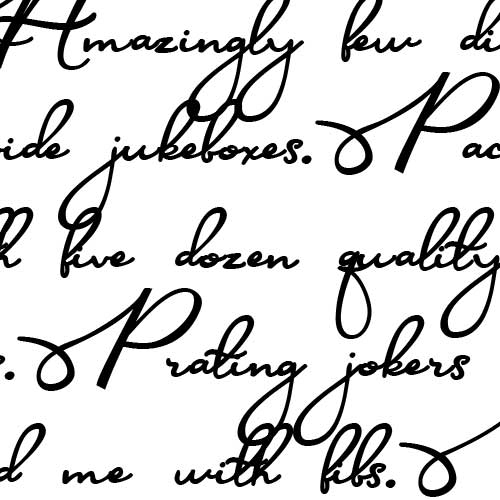 Amazingly few di
vide jukeboxes. Pac
h five dozen quality
s. Prating jokers
d me with fibs.